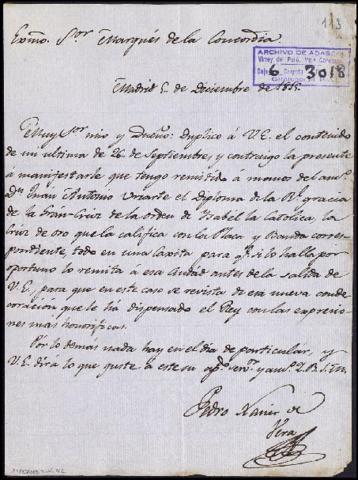 1/3
Exmo. Sor. Marqués de la Concordia
ARCHIVO DE ABASCAL
6 3018
Madrid 5 de Diciembre de 1815.
Muy Sor. mio y Dueño: Duplico á V.E. el contenido
de mi ultima de 26 de Septiembre, y contraigo la presente
a manifestarle que tengo remitido á manos del
Dn. Juan Antonio Uriarte el Diploma de la Rl. gracia
de la Gran-Cruz de la orden de Isabel la Catolica, la
Cruz de oro que la califica con la Placa y Banda corres-
pondiente, todo en una Caxita para qe. si lo halla por
oportuno lo remita á esa Ciudad antes de la salida de
V.E., para que en este caso se revista de esa nueva conde-
coración que le ha dispensado el Rey con las expresio-
nes mas honorificas.
Por lo demás nada hay en el dia de particular, y
V.E. dirá lo que guste á este su
Pedro Xavier de
Vera